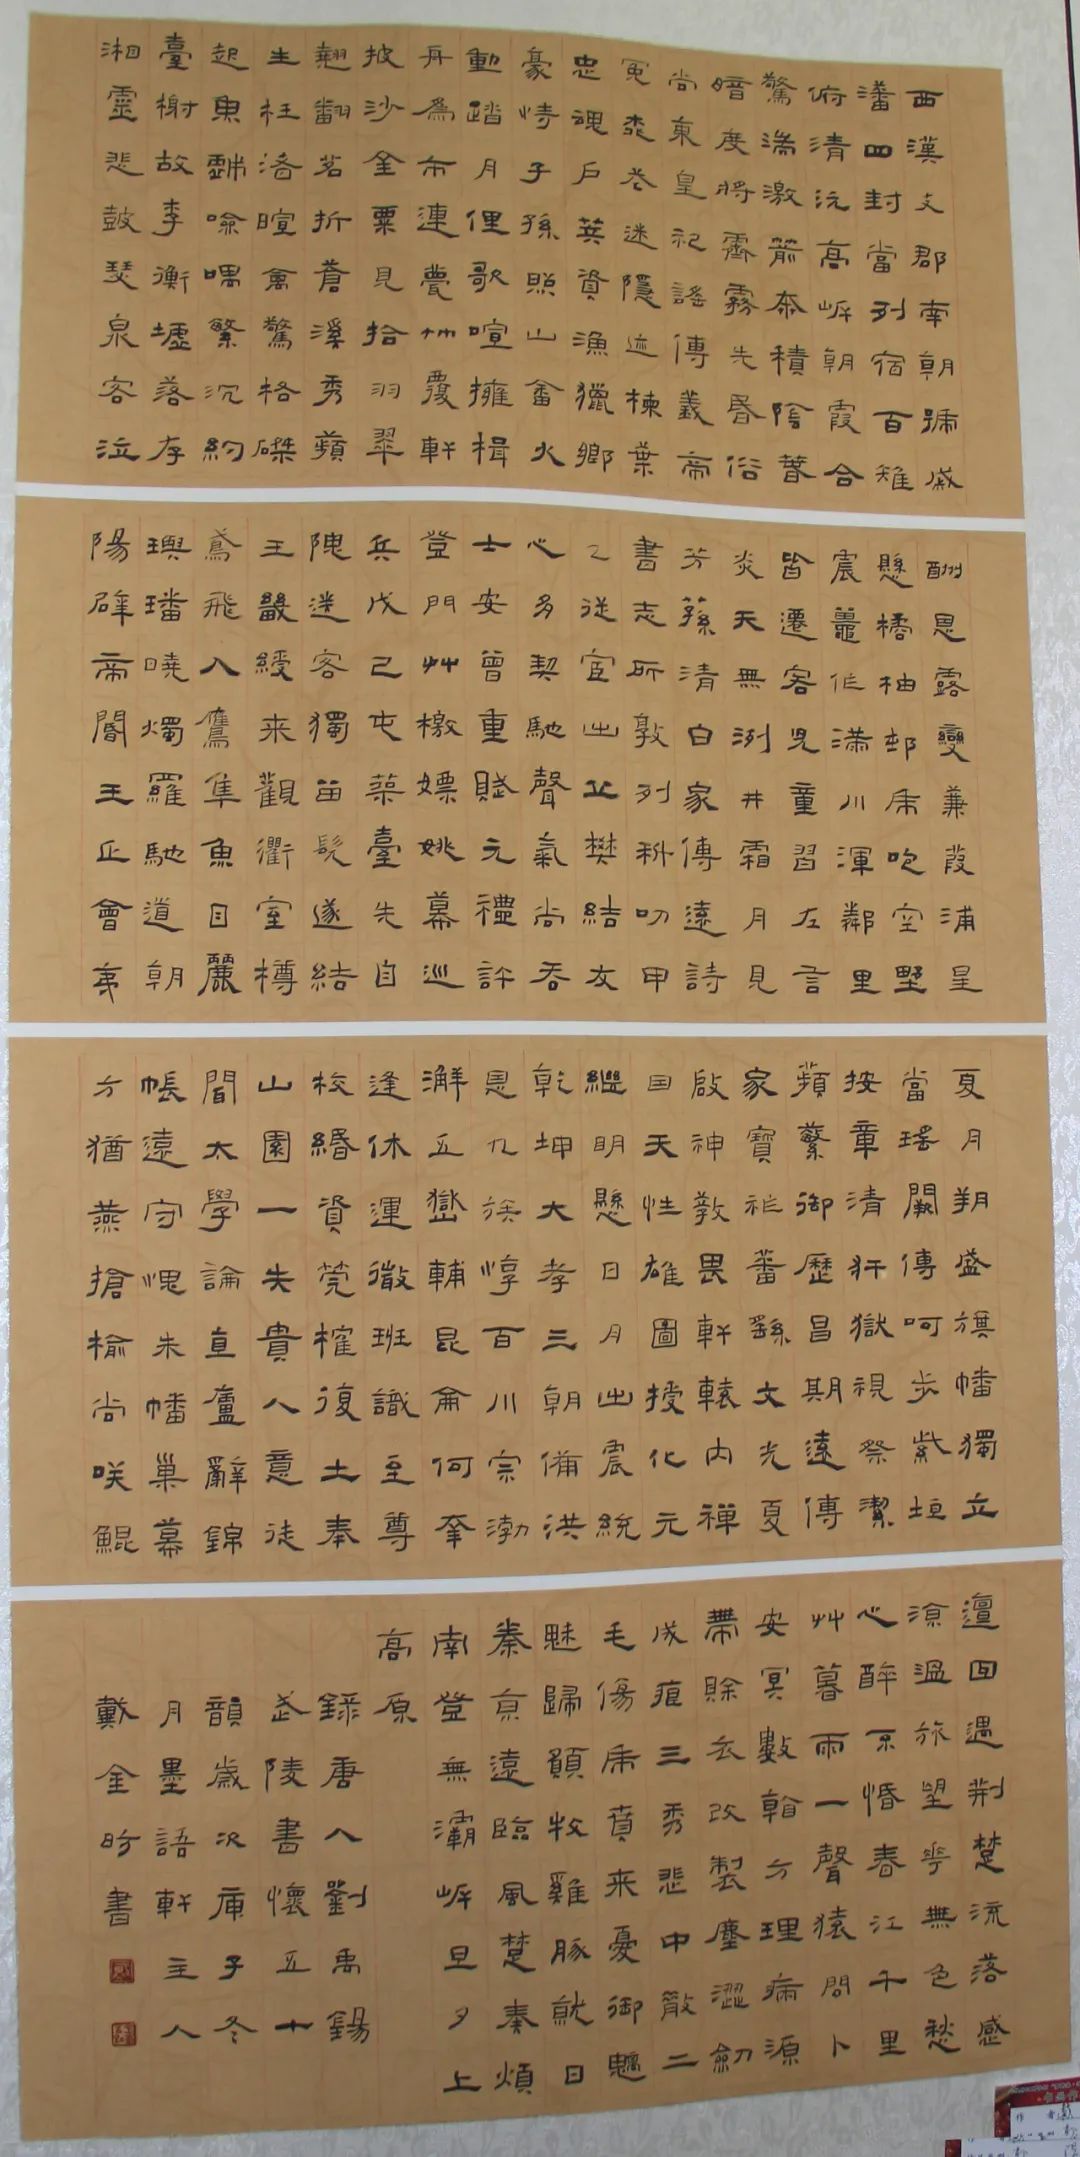 西漢支郡南朝號戚
藩四封當列宿百雉
俯清沅高岸朝霞合
驚湍激箭奔積陰春
暗度將霽霧先昏俗
尚東皇祀謠傳義帝
冤桃花迷隱迹楝葉
忠魂戶算資漁獵鄉
豪恃子孫照山畬火
動踏月俚歌喧擁楫
舟為市連甍竹覆軒
披沙金粟見拾羽翠
翹翻茗折蒼溪秀蘋
生枉渚暄禽驚格磔
起魚戲噞喁繁沉約
臺榭故李衡墟落存
湘靈悲鼓瑟泉客泣
酬恩露變蒹葭浦星
懸橘柚邨虎咆空野
震鼉作滿川渾鄰里
皆遷客兒童習左言
炎天無冽井霜月見
芳蓀清白家傳遠詩
書志所敦列科叨甲
乙從宦出丘樊結友
心多契馳聲氣尚吞
士安曾重賦元禮許
登門艸檄嫖姚幕巡
兵戊己屯築臺先自
隗送客獨留髡遂結
王畿綬來觀衢室樽
鳶飛入鷹隼魚目麗
璵璠曉燭羅馳道朝
陽辟帝閽王正會夷
夏月朔盛旗幡獨立
當瑤闕傳呵步紫垣
按章清犴獄視祭潔
蘋蘩御歷昌期遠傳
家寶祚蕃繇文光夏
啟神教畏軒轅內禪
因天性雄圖授化元
繼明懸日月出震統
乾坤大孝三朝備洪
恩九族惇百川宗渤
澥五嶽輔昆侖何幸
逢休運微班識至尊
校緡資筦榷復土奉
山園一失貴人意徒
聞太學論直廬辭錦
帳遠守愧朱幡巢幕
方猶燕搶榆尚咲鯤
邅回過荊楚流落感
涼溫旅望花無色愁
心醉不惛春江千里
艸暮雨一聲猿問卜
安冥數看方理病源
帶賒衣改製塵澀劍
成痕三秀悲中散二
毛傷虎賁來憂御魑
魅歸願牧雞豚就日
秦京遠臨風楚奏煩
南登無灞岸旦夕上
高原
錄唐人劉禹錫
武陵書懷五十
韻歲次庚子冬
月墨語軒主人
戴金昉書